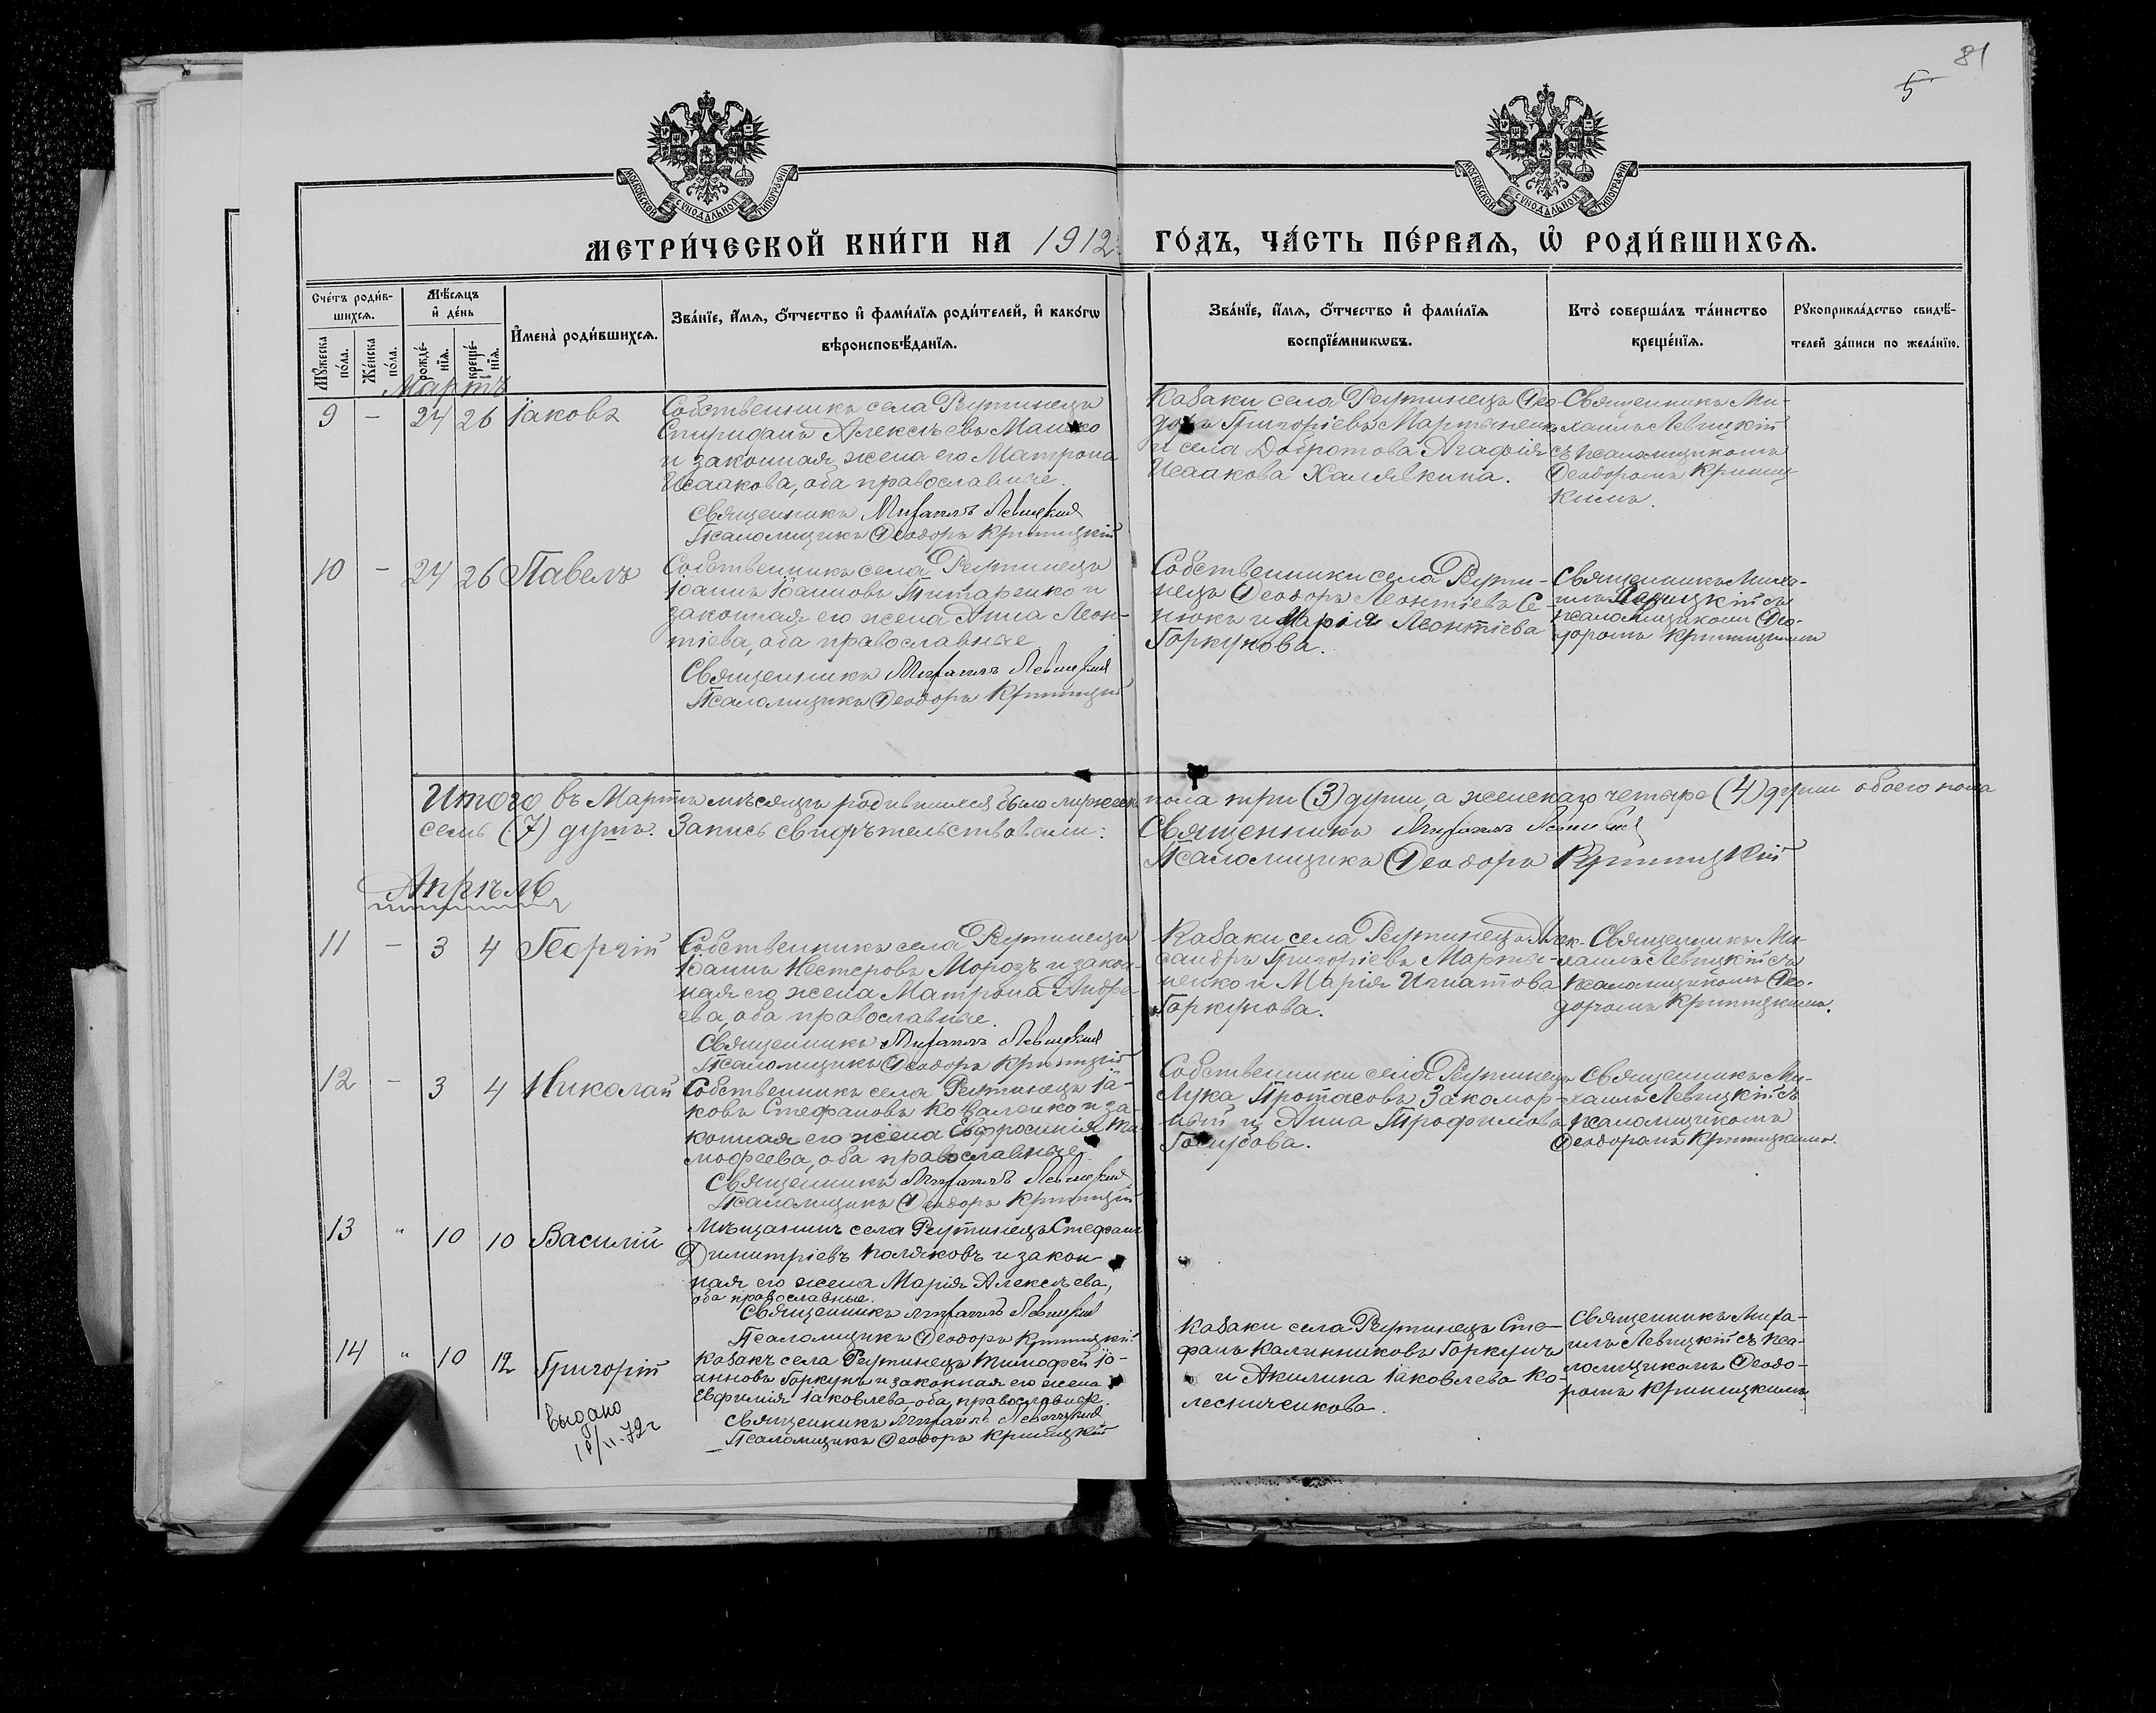 81
5
МОСКОВСКОЙ СѴНОДАЛЬНОЙ ТИПОГРАФІИ
МОСКОВСКОЙ СѴНОДАЛЬНОЙ ТИПОГРАФІИ
МЕТРИ́ЧЕСКОЙ КНИ́ГИ НА 1912
ГО́ДЪ, ЧА́СТЬ ПЕ́РВАЯ, Ѡ РОДИ́ВШИХСЯ.
Сче́тъ роди́в-
шихся.
Мѣ́сяцъ
и҆ де́нь
Му́жеска
по́ла.
Же́нска
по́ла.
рожде́-
нїя.
креще́-
нїя.
И҆мена̀ роди́вшихся.
Зва́нїе, и҆́мя, ѻ҆́тчество и҆ фами́лїя роди́телей, и҆ како́гѡ
вѣроисповѣ́данїя.
Зва́нїе, и҆́мя, ѻ҆́тчество и҆ фами́лїя
воспрїе́мникѡвъ.
Кто̀ соверша́лъ та́инство
креще́нїя.
Рꙋкоприкла́дство свидѣ́-
телей за́писи по жела́нїю.
Мартъ
9 - 24 26 Іаковъ
Собственникъ села Реутинецъ
Спиридонъ Алексѣевъ Машко
и законная жена его Матрона
Исаакова, оба православные.
Священникъ Михаилъ Левицкий
Псаломщикъ Ѳеодоръ Криницкій
Козаки села Реутинецъ Ѳео-
доръ Григоріевъ Мартыненко
и села Добротова Агафія
Исаакова Халявкина.
Священникъ Ми-
хаилъ Левицкій
съ псаломщикомъ
Ѳеодоромъ Криниц-
кимъ.
10 - 24 26 Павелъ
Собственникъ села Реутинецъ
Іоаннъ Іоанновъ Титаренко и
законная его жена Анна Леон-
тіева, оба православные
Священникъ Михаилъ Левицкий
Псаломщикъ Ѳеодоръ Криницкій
Собственники села Реути-
нецъ Ѳеодоръ Леонтіевъ Се-
нюкъ и Марія Леонтіева
Горкунова.
Священникъ Миха-
илъ Левицкій съ
псаломщикомъ Ѳео-
доромъ Криницкимъ
Итого въ Мартѣ мѣсяцѣ родившихся было мужеск. пола три (3) души, а женскаго четыре (4) души обоего пола
семь (7) душъ. Запись свидѣтельствовали:
Священникъ Михаилъ Левицкий
Псаломщикъ Ѳеодоръ Криницкій
Апрѣль
11 - 3 4 Георгій
Собственникъ села Реутинецъ
Іоаннъ Нестеровъ Морозъ и закон-
ная его жена Матрона Андре-
ева, оба православные.
Священникъ Михаилъ Левицкий
Псаломщикъ Ѳеодоръ Криницкій
Козаки села Реутинецъ Алек-
сандръ Григоріевъ Марты-
ненко и Марія Игнатова
Горкунова.
Священникъ Ми-
хаилъ Левицкій съ
псаломщикомъ Ѳео-
доромъ Криницкимъ.
12 - 3 4 Николай
Собственникъ села Реутинецъ Іа-
ковъ Стефановъ Коваленко и за-
конная его жена Евфросинія Ти-
мофеева, оба православные
Священникъ Михаилъ Левицкий
Псаломщикъ Ѳеодоръ Криницкій
Собственники села Реутинецъ
Лука Протасовъ Закомор-
ный и Анна Трофимова
Голубова.
Священникъ Ми-
хаилъ Левицкій съ
псаломщикомъ
Ѳеодоромъ Криницкимъ.
13 " 10 10 Василій
Мѣщанинъ села Реутинецъ Стефанъ
Димитріевъ Поляковъ и закон-
ная его жена Марія Алексѣева,
оба православные.
Священникъ Михаилъ Левицкий
Псаломщикъ Ѳеодоръ Криницкій
14 " 10 12 Григорій
Козакъ села Реутинецъ Тимофей Іо-
анновъ Горкунъ и законная его жена
Евфимія Іаковлева, оба православные.
Священникъ Михаилъ Левицкий
Псаломщикъ Ѳеодоръ Криницкій
Козаки села Реутинецъ Сте-
фанъ Калинниковъ Горкунъ
и Акилина Іаковлева Ко-
лесниченкова.
Священникъ Миха-
илъ Левицкій съ пса-
ломщикомъ Ѳеодо-
ромъ Криницкимъ
Выдано